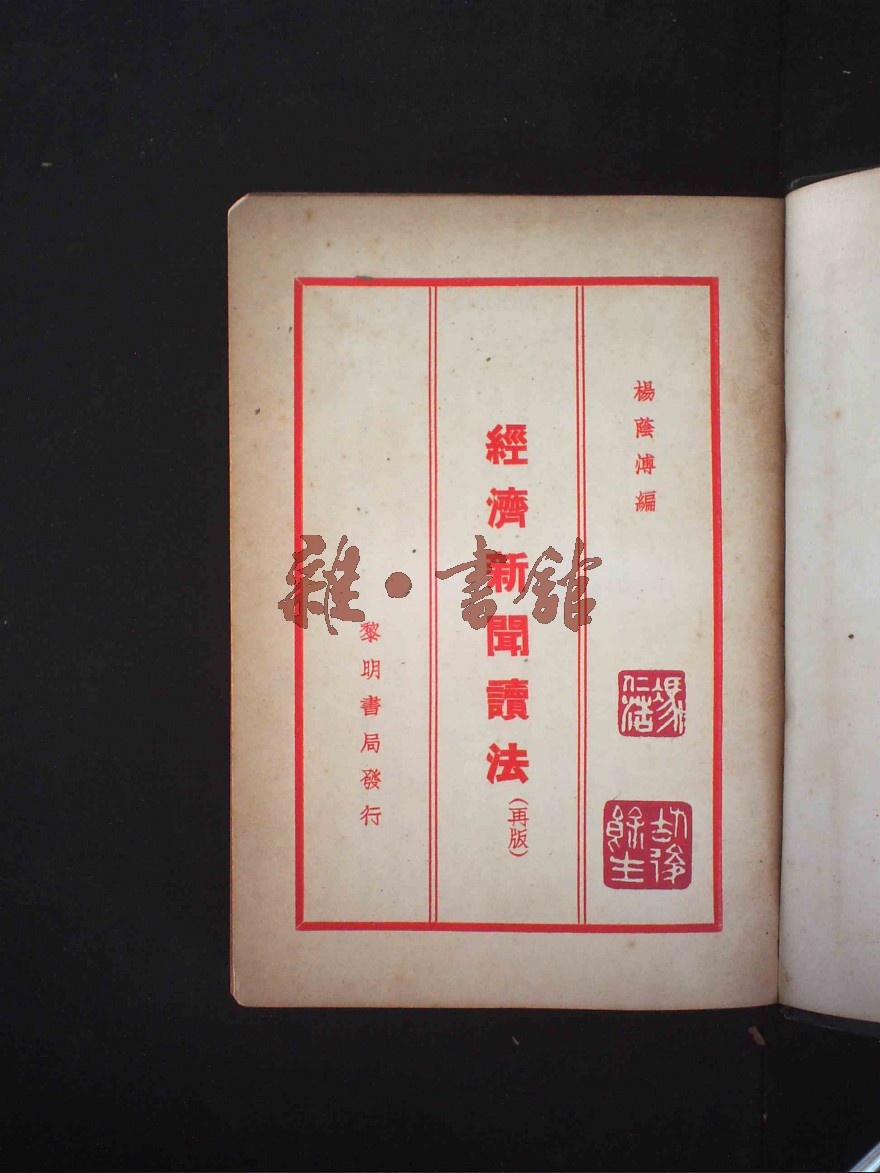 楊蔭溥編
經濟新聞讀法(再版)
黎明書局發行
劫後餘生
雜·書館